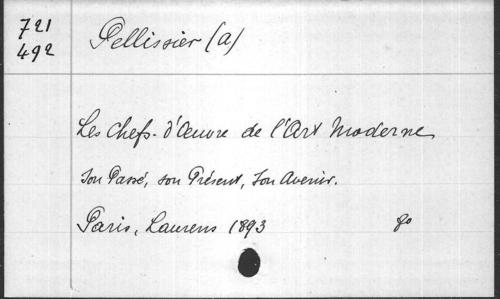 721
492
Pellissier (a)
Les Chefs-d'Œuvre de l'Art Moderne
Son Passé, son Présent, Son Avenir.
Paris, Laurens 1893 8o